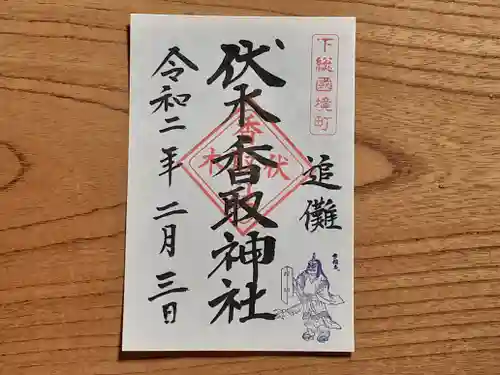 下総國境町
追儺
伏木香取神社
令和二年二月三日